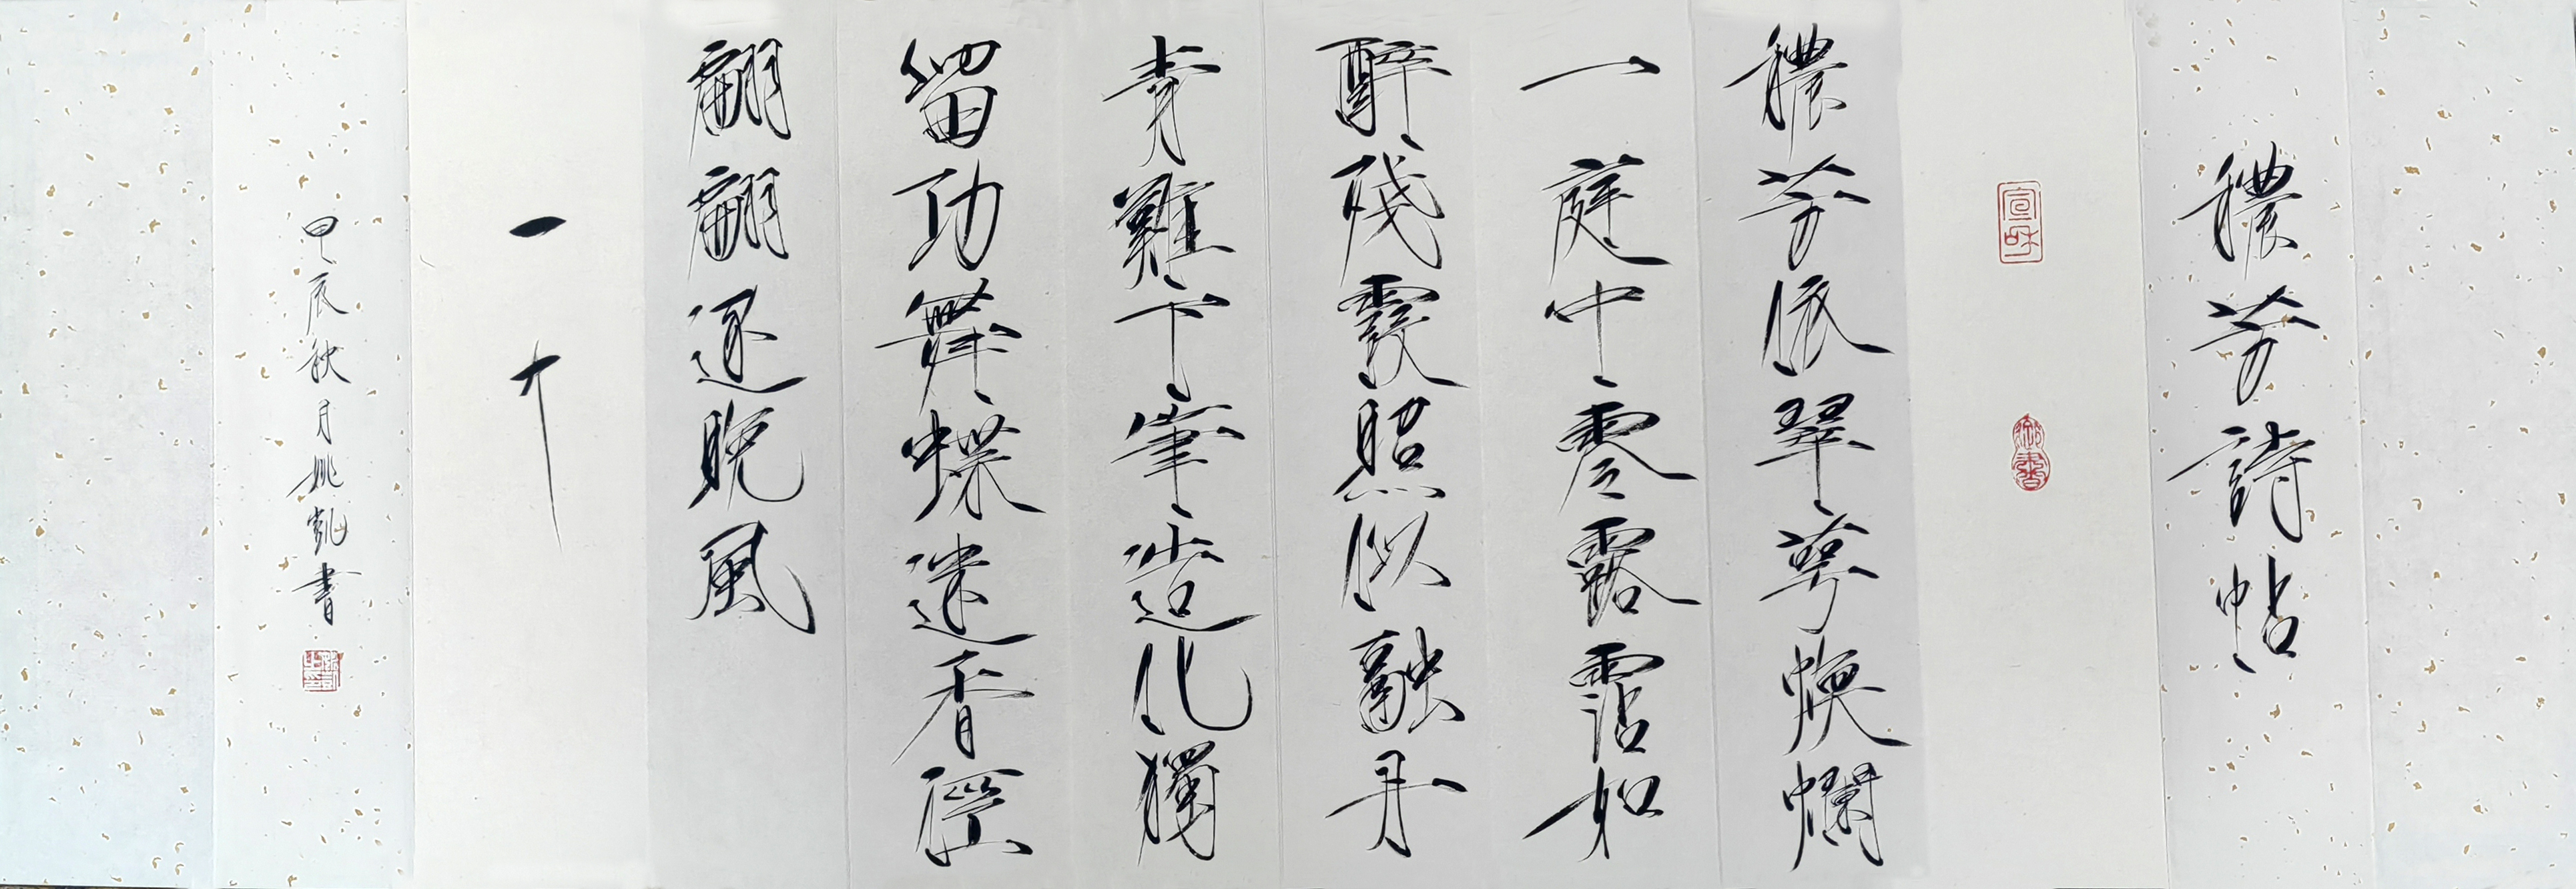 穠芳詩帖
宣和
御書
穠芳依翠萼煥爛
一庭中零露霑如
醉殘霞照似融丹
青難下筆造化獨
留功舞蝶迷香徑
翩翩逐晚風
甲辰秋月姚凱書